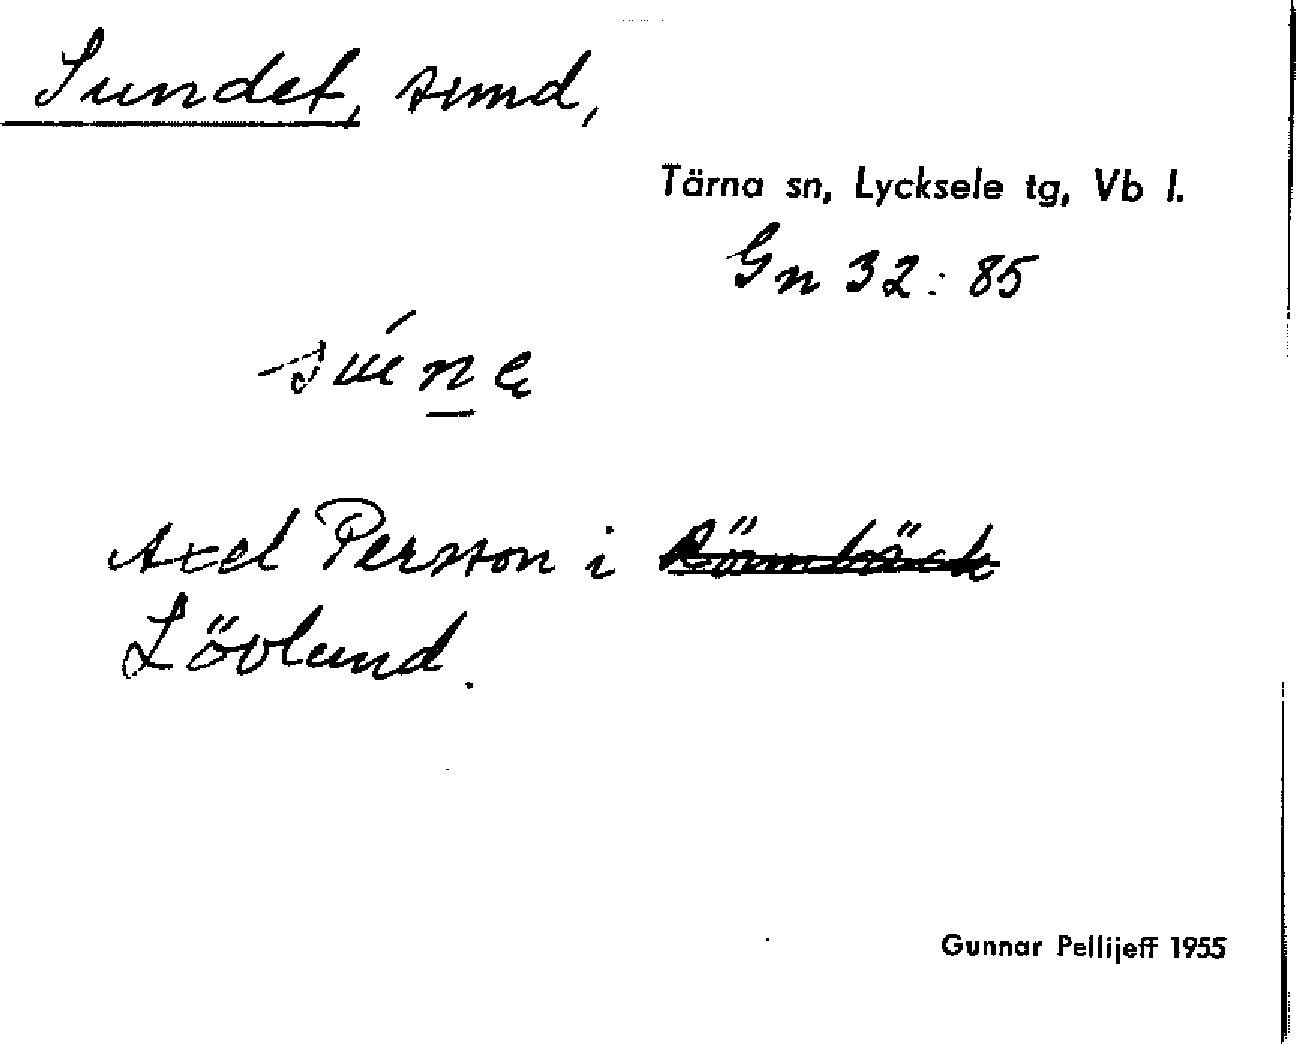 Sundet, sund,
Tärna sn, Lycksele tg, Vb l.
Gn 32:85
Axel Persson i
Lövlund.
Gunnar Pellijeff 1955